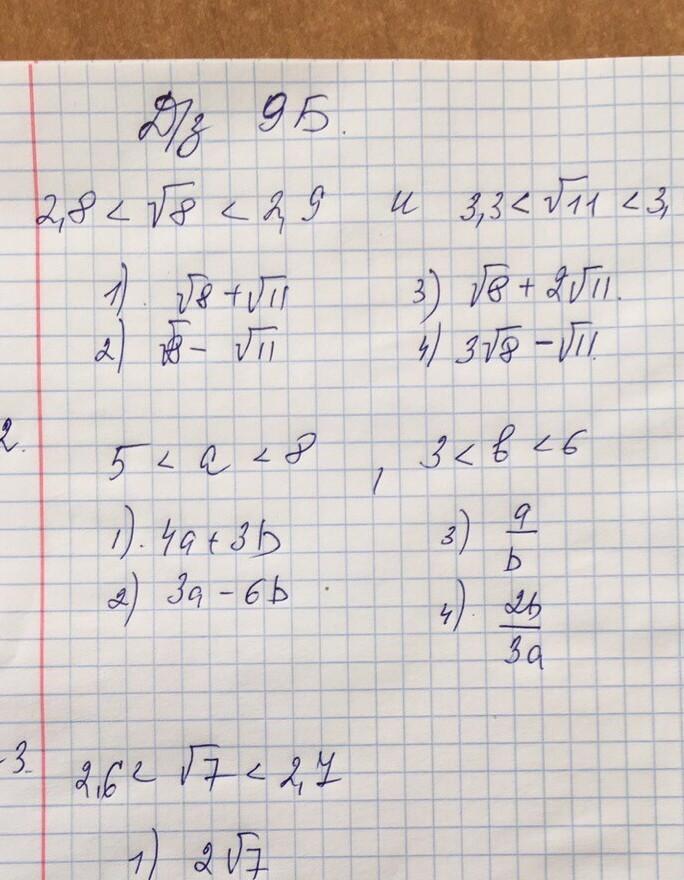 Д/з 9Б.
2,8 < √8 < 2,9 и 3,3 < √11 < 3,
1). √8 + √11 3) √8 + 2√11.
2) √8 - √11 4) 3√8 - √11.
2. 5 < a < 8, 3 < b < 6
1). 4a + 3b 3) a/b
2) 3a - 6b 4). 2b/3a
3. 2,6 < √7 < 2,7
1) 2√7